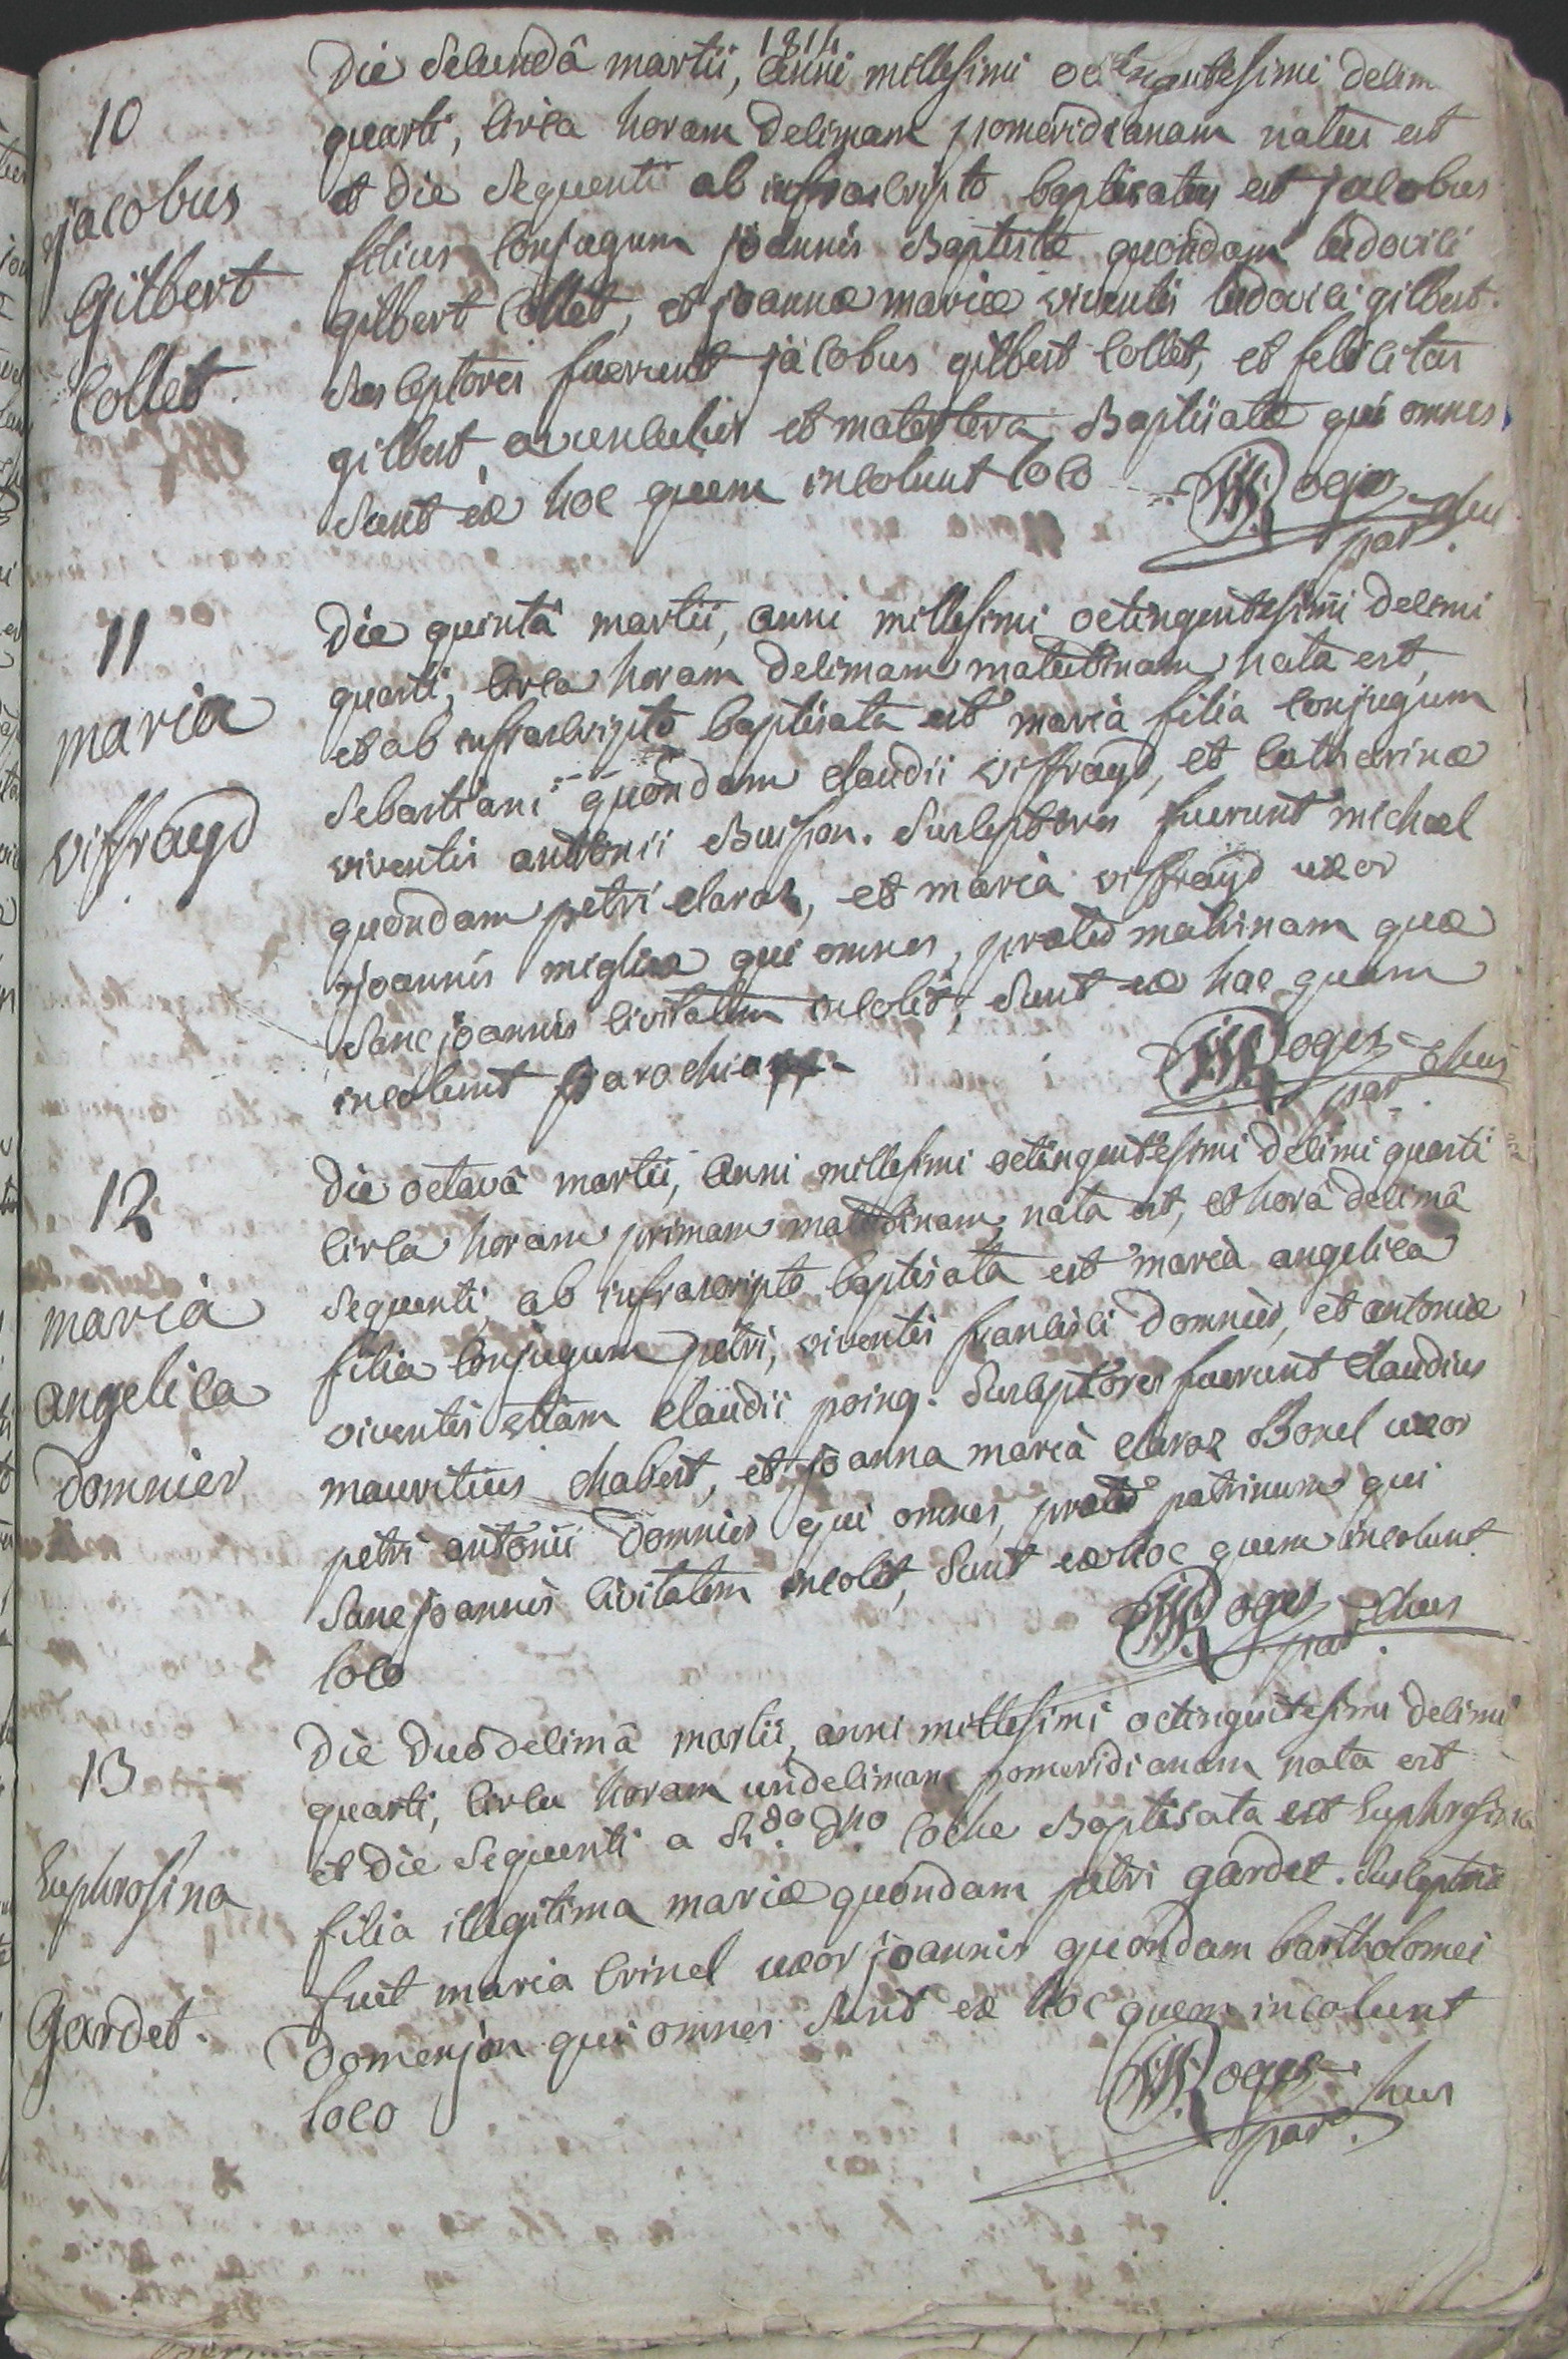 1814
10
jacobus
Gilbert
Collet.
Die secundâ martii, anni millesimi octingentesimi decim
quarti, circa horam decimam pomeridianam natus est
et die sequenti ab infrascripto baptisatus est jacobus
filius conjugum joannis Baptistæ quondam ludovici
gilbert Collet, et joannæ mariæ viventis ludovici gilbert.
susceptores fuerunt jacobus gilbert Collet, et felicitas
gilbert, avunculus et matertera Baptisatæ qui omnes
sunt ex hoc quem incolunt loco
Roges parchus
11
maria
viffrayd
Die quintâ martii, anni millesimi octingentesimi decimi
quarti, circa horam decimam matutinam nata est,
et ab infrascripto baptisata est maria filia conjugum
Sebastiani quondam claudii viffrayd, et catharinæ
viventis antonii Buisson. susceptores fuerunt michael
quondam petri claraz, et maria viffrayd uxor
joannis miglior qui omnes, præter matrinam quæ
sanc joannis civitatem incolit, sunt ex hac quam
incolunt parochia
Roges parchus
12
maria
angelica
Domnier
Die octavâ martii, anni millesimi octingentesimi decimi quarti
circa horam primam matutinam nata est, et horâ decimâ
sequenti, ab infrascripto baptisata est maria angelica
filia conjugum petri, viventis francisci Domnier, et antoniæ
viventis etiam claudii poing. susceptores fuerunt claudius
mauritius chabert, et joanna maria claraz Borel uxor
petri antonii Domnier qui omnes, præter patrinum qui
sanc joannis civitatem incolit, sunt ex hoc quem incolunt
loco
Roges parchus
13
Euphrosina
Gardet.
Die duodecimâ martii, anni millesimi octingentesimi decimi
quarti, circa horam undecimam pomeridianam nata est
et die sequenti a Rdo Dno Coche Baptisata est Euphrosina
filia illegitima mariæ quondam petri gardet. susceptrix
fuit maria Crinel uxor joannis quondam bartholomei
Domenjon qui omnes sunt ex hoc quem incolunt
loco
Roges parchus